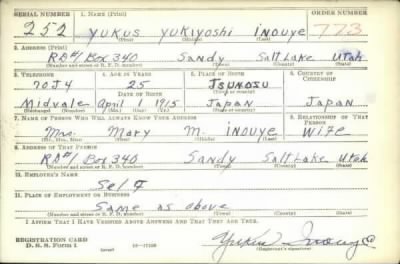 SERIAL NUMBER 1. NAME (Print) ORDER NUMBER
252 YUKUS YUKIYOSHI INOUYE 773
(First) (Middle) (Last)
2. ADDRESS (Print)
RD#1 Box 340 Sandy Salt Lake Utah
(Number and street or R. F. D. number) (Town) (County) (State)
3. TELEPHONE 4. AGE IN YEARS 5. PLACE OF BIRTH 6. COUNTRY OF CITIZENSHIP
70J4 25
DATE OF BIRTH
Midvale April 1 1915 Japan Japan
(Exchange) (Number) (Mo.) (Day) (Yr.) (State or country)
7. NAME OF PERSON WHO WILL ALWAYS KNOW YOUR ADDRESS 8. RELATIONSHIP OF THAT PERSON
Mrs. Mary M. Inouye Wife
(Mr., Mrs., Miss) (First) (Middle) (Last)
9. ADDRESS OF THAT PERSON
RD#1 Box 340 Sandy Salt Lake Utah
(Number and street or R. F. D. number) (Town) (County) (State)
10. EMPLOYER'S NAME
Self
11. PLACE OF EMPLOYMENT OR BUSINESS
Same as above
(Number and street or R. F. D. number) (Town) (County) (State)
I AFFIRM THAT I HAVE VERIFIED ABOVE ANSWERS AND THAT THEY ARE TRUE.
REGISTRATION CARD
D. S. S. Form 1 Yukus Inouye
(Registrant's signature)